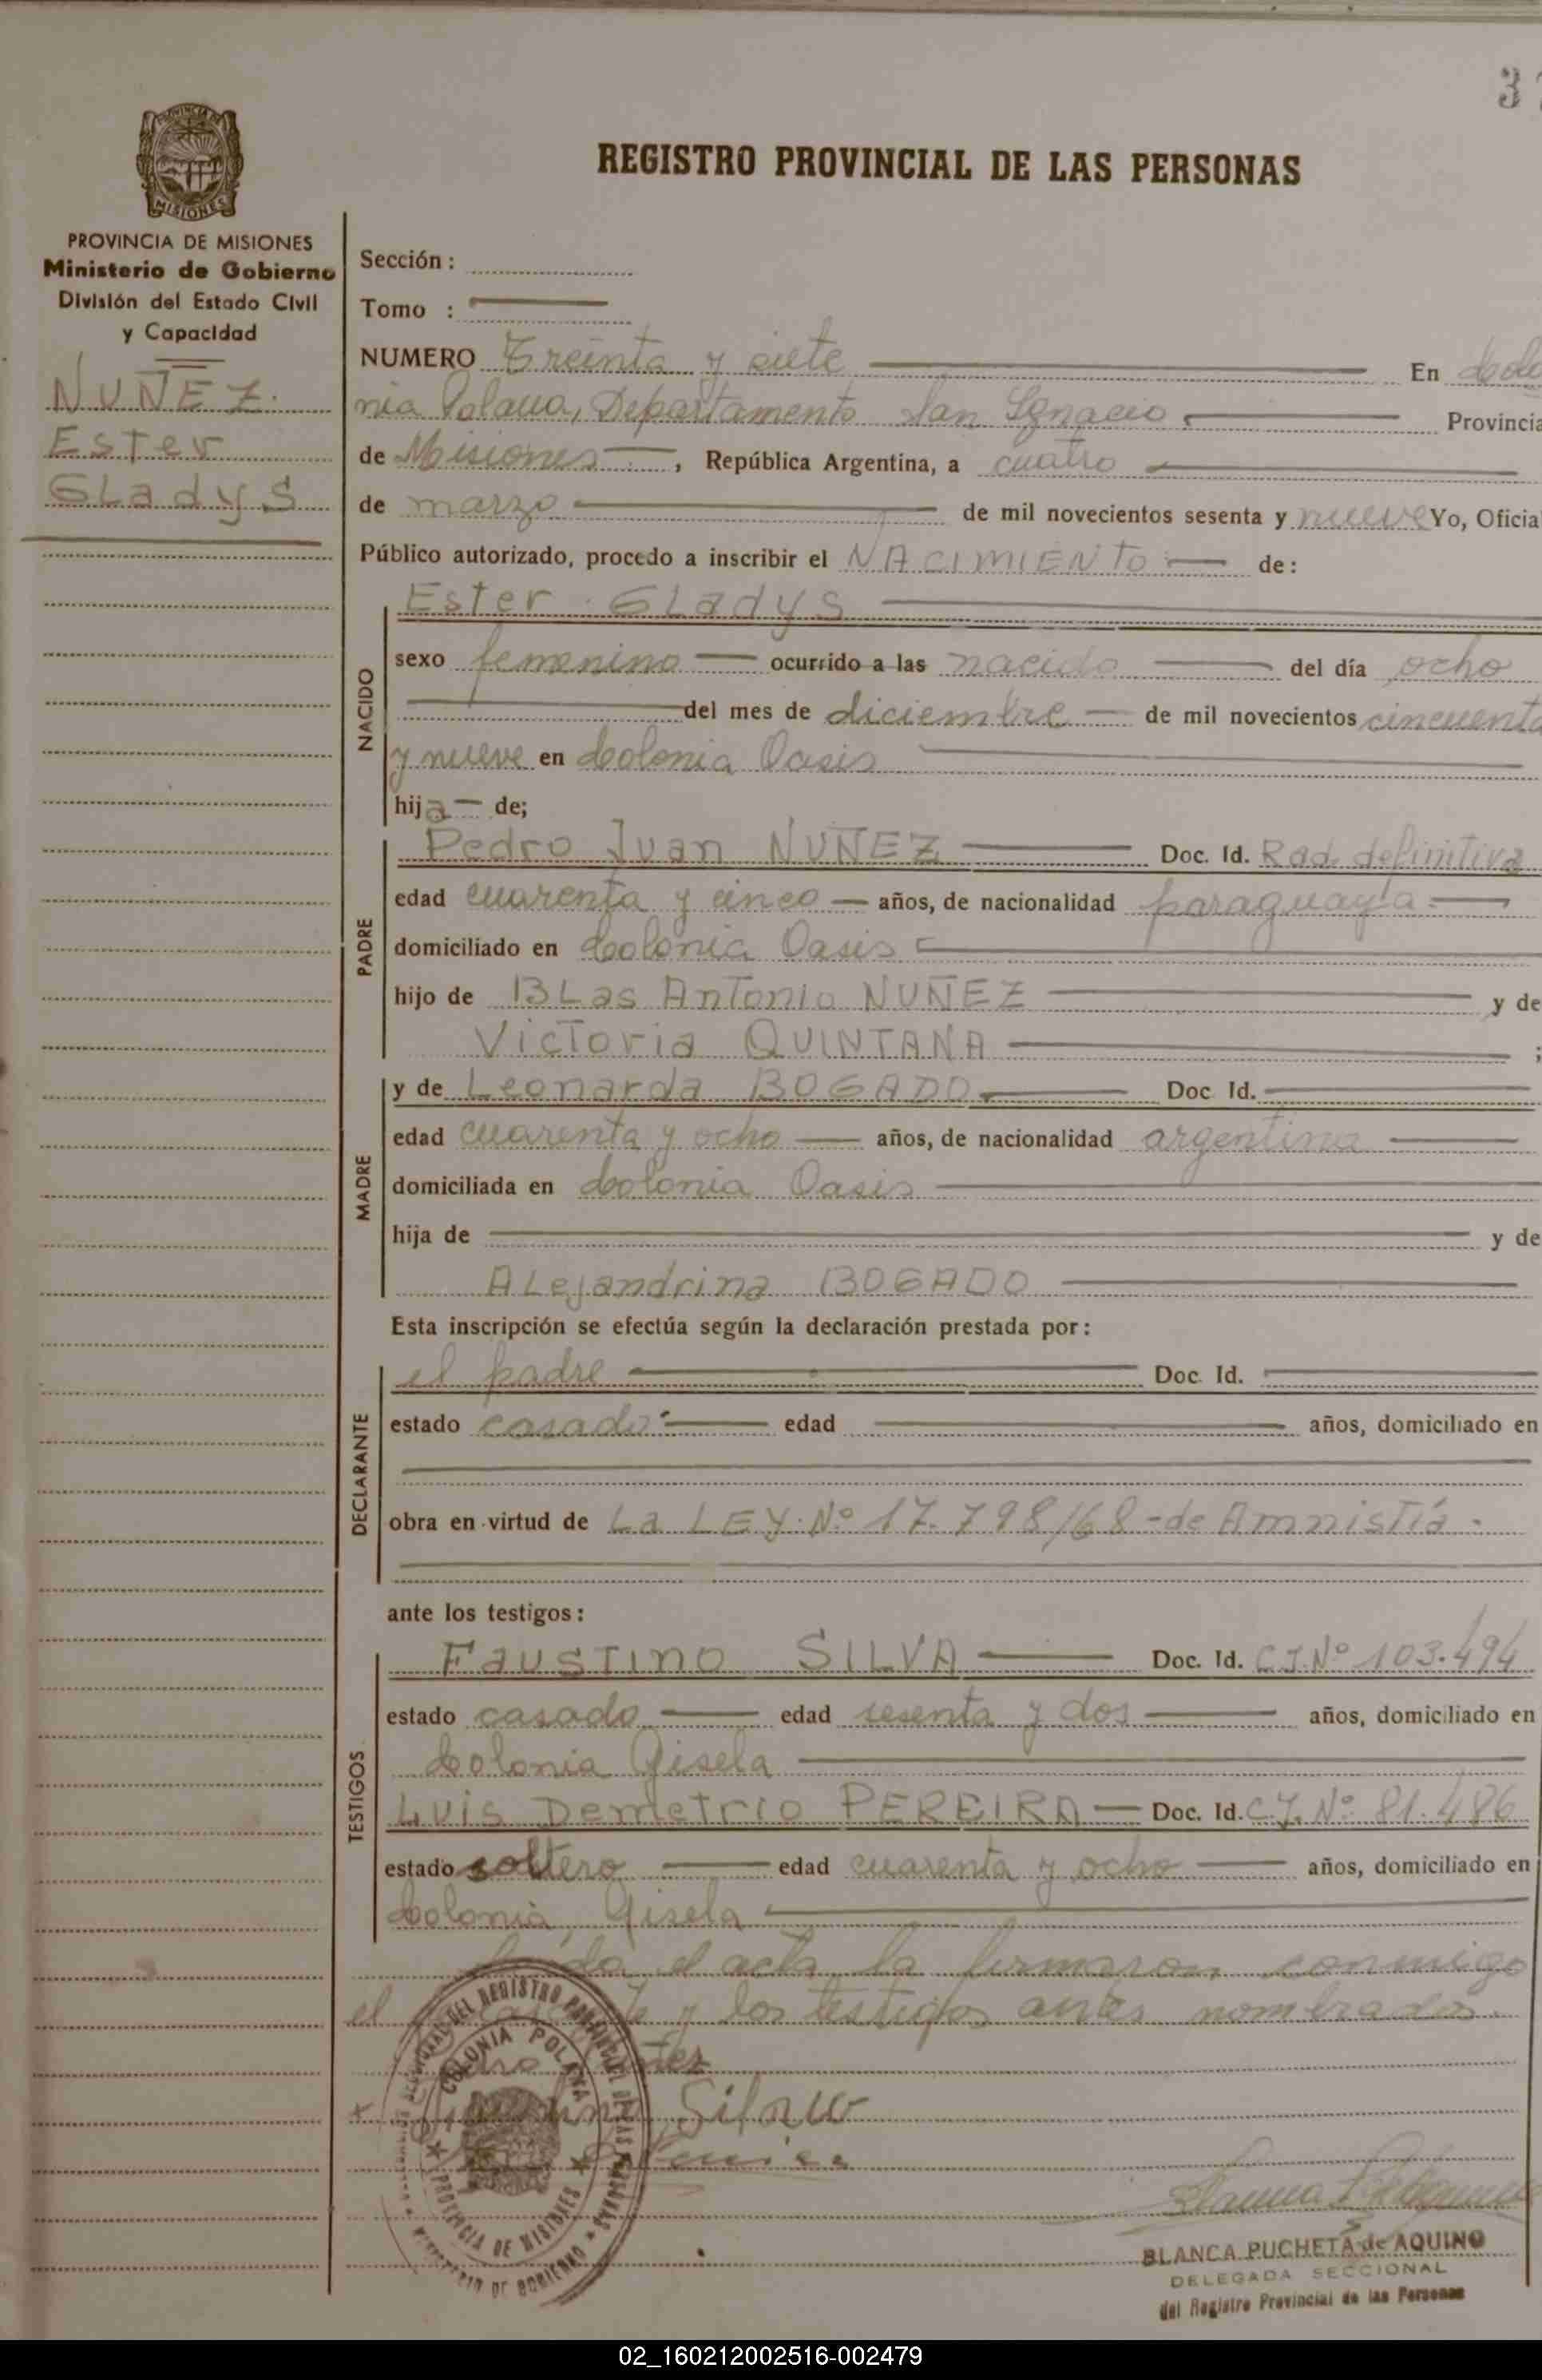 3
REGISTRO PROVINCIAL DE LAS PERSONAS
PROVINCIA DE
MISIONES
PROVINCIA DE MISIONES
Ministerio de Gobierno
División del Estado Civil
y Capacidad
NUÑEZ
Ester
GLadyS
Sección :
Tomo :
NUMERO Treinta y siete En Colo
nia Polana, Departamento San Ignacio Provincia
de Misiones , República Argentina, a cuatro
de marzo de mil novecientos sesenta y nueve Yo, Oficial
Público autorizado, procedo a inscribir el NACIMIENTO de:
NACIDO
Ester GLadyS
sexo femenino ocurrido a las nacido del día ocho
del mes de diciembre de mil novecientos cincuenta
y nueve en Colonia Oasis
hija de;
PADRE
Pedro Juan NUÑEZ Doc. Id. Rad. definitiva
edad cuarenta y cinco años, de nacionalidad paraguaya
domiciliado en Colonia Oasis
hijo de BLas Antonio NUÑEZ y de
Victoria QUINTANA ;
MADRE
y de Leonarda BOGADO Doc. Id.
edad cuarenta y ocho años, de nacionalidad argentina
domiciliada en Colonia Oasis
hija de y de
ALejandrina BOGADO
Esta inscripción se efectúa según la declaración prestada por:
DECLARANTE
el padre Doc. Id.
estado casado edad años, domiciliado en
obra en virtud de La LEY Nº 17.798/68 - de Amnistía.
ante los testigos:
TESTIGOS
Faustino SILVA Doc. Id. C.I. Nº 103.494
estado casado edad sesenta y dos años, domiciliado en
Colonia Gisela
Luis Demetrio PEREIRA Doc. Id. C.I. Nº 81.486
estado soltero edad cuarenta y ocho años, domiciliado en
Colonia Gisela
el acta, la firmaron conmigo
el y los testigos antes nombrados.
COLONIA POLANA
PROVINCIA DE MISIONES
Silva
BLANCA PUCHETA de AQUINO
DELEGADA SECCIONAL
del Registro Provincial de las Personas
02_160212002516-002479